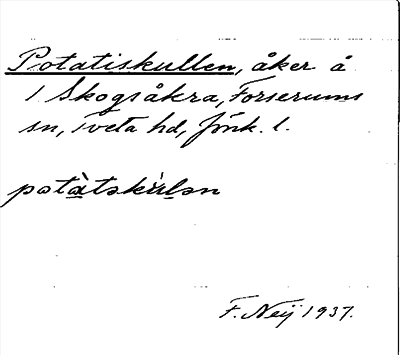 Potatiskullen, åker å
1 Skogsåkra, Forserums
sn, Tveta hd, Jönk. l.
F. Neij 1937.